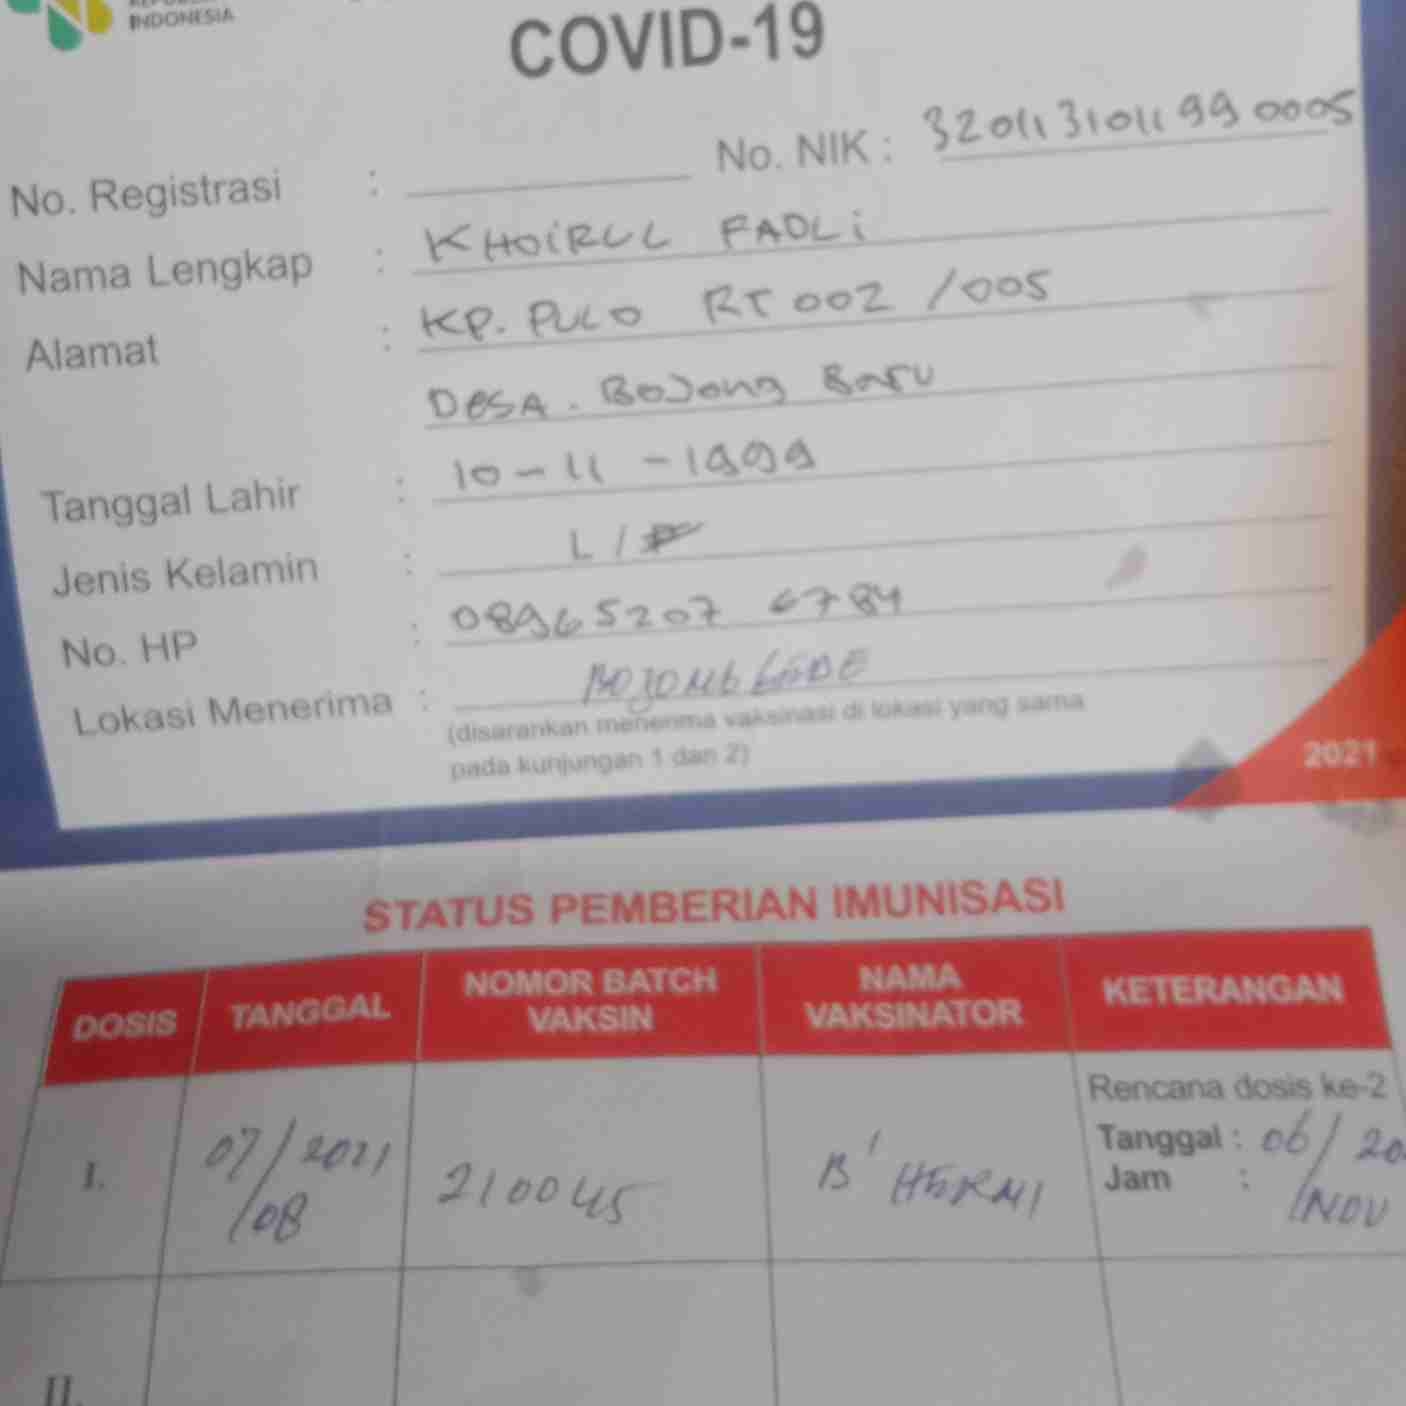 INDONESIA
COVID-19
No. Registrasi : No. NIK : 3201131011990005
Nama Lengkap : KHOIRUL FADLi
Alamat : KP. PULO RT 002 /005
DESA. BOJong Baru
Tanggal Lahir : 10-11-1999
Jenis Kelamin : L / P
No. HP : 089652076784
Lokasi Menerima : BOJONG GEDE
(disarankan menerima vaksinasi di lokasi yang sama
pada kunjungan 1 dan 2)
2021
STATUS PEMBERIAN IMUNISASI
DOSIS TANGGAL NOMOR BATCH VAKSIN NAMA VAKSINATOR KETERANGAN
Rencana dosis ke-2
I. 07/2021 210045 B' HERMI Tanggal : 06/20
/08 Jam : /NOV
II.